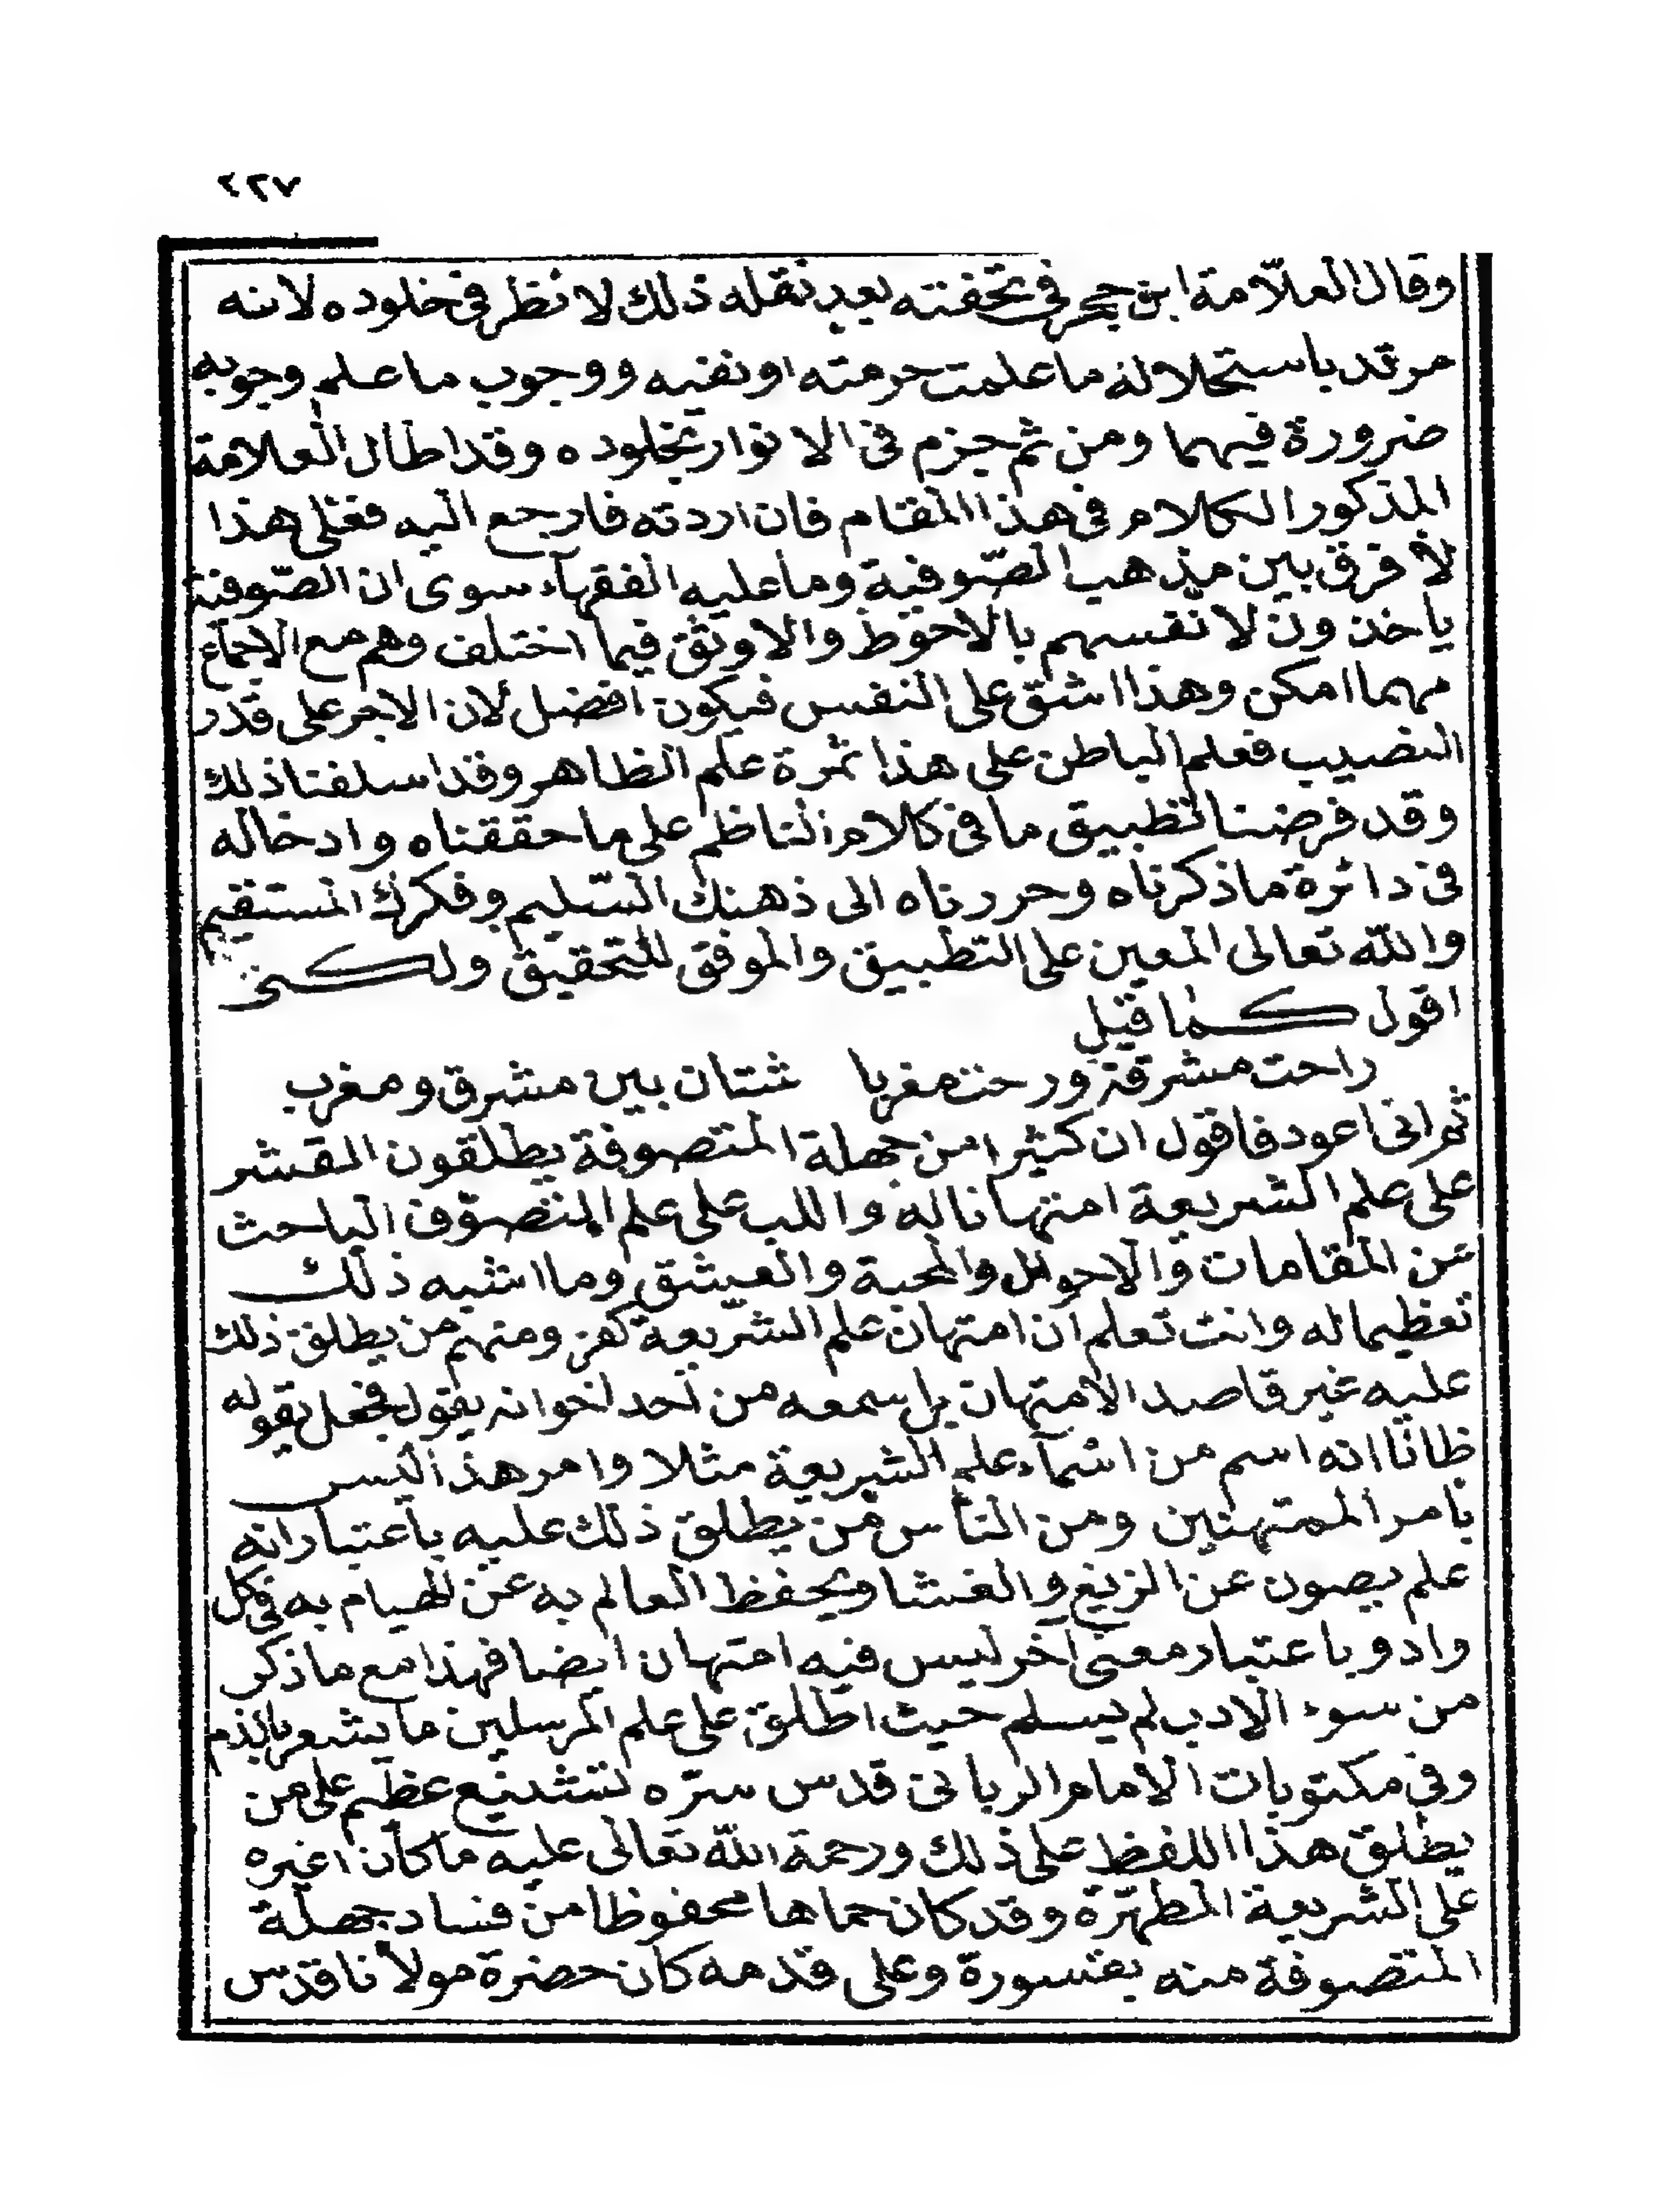 ٤٢٧
وقال العلّامة ابن حجر فى تحفته بعد نقله ذلك لا نظر فى خلوده لانه
مرتد باستحلاله ما علمت حرمته او نفيه ووجوب ما علم وجوبه
ضرورة فيهما ومن ثم جزم فى الانوار بخلوده وقد اطال العلامة
المذكور الكلام فى هذا المقام فان اردته فارجع اليه فعلى هذا
لا فرق بين مذهب الصّوفية وما عليه الفقهاء سوى ان الصّوفية
ياخذون لانفسهم بالاحوط والاوثق فيما اختلف وهم مع الاجماع
مهما امكن وهذا اشق على النفس فيكون افضل لان الاجر على قدر
النصيب فعلم الباطن على هذا ثمرة علم الظاهر وقد اسلفنا ذلك
وقد فرضنا تطبيق ما فى كلام الناظم على ما حققناه وادخاله
فى دائرة ما ذكرناه وحررناه الى ذهنك السّليم وفكرك المستقيم
والله تعالى المعين على التطبيق والموفق للتحقيق ولكنى
اقول كما قيل
راحت مشرقة ورحت مغربا شتان بين مشرق ومغرب
ثم انى اعود فاقول ان كثيرا من جهلة المتصوفة يطلقون القشر
على علم الشريعة امتهانا له واللب على علم التصوّف الباحث
عن المقامات والاحوال والمحبة والعشق وما اشبه ذلك
تعظيما له وانت تعلم ان امتهان علم الشريعة كفر ومنهم من يطلق ذلك
عليه غير قاصد الامتهان بل سمعه من احد اخوانه يقول فجعل يقوله
ظانا انه اسم من اسماء علم الشريعة مثلا وامر هذا ليس
بامر الممتهنين ومن الناس من يطلق ذلك عليه باعتبار انه
علم يصون عن الزيغ والغشا ويحفظ العالم به عن الهيام به فى كل
واد وباعتبار معنى آخر ليس فيه امتهان ايضا فهذا مع ما ذكر
من سوء الادب لم يسلم حيث اطلق على علم المرسلين ما يشعر بالذم
وفى مكتوبات الامام الربانى قدس سرّه تشنيع عظيم على من
يطلق هذا اللفظ على ذلك ورحمة الله تعالى عليه ما كان اغيره
على الشريعة المطهّرة وقد كان حماها محفوظا من فساد جهلة
المتصوفة منه بقسورة وعلى قدمه كان حضرة مولانا قدس